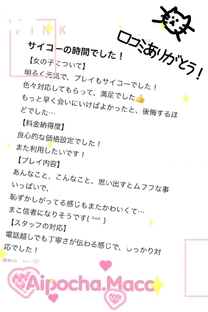 PINK
口コミありがとう!
サイコーの時間でした!
【女の子について】
明るく元気で、プレイもサイコーでした!
色々対応してもらって、満足でした👍
もっと早く会いにいけばよかったと、後悔するほ
どでした...
【料金納得度】
良心的な価格設定でした!
また利用したいです!
【プレイ内容】
あんなこと、こんなこと、思い出すとムフフな事
いっぱいで、
恥ずかしがってる感じもまたかわいくて...
まこ信者になりそうです(
【スタッフの対応】
電話越しでも丁寧さが伝わる感じで、しっかり対
応でした!
Aipocha.Maco